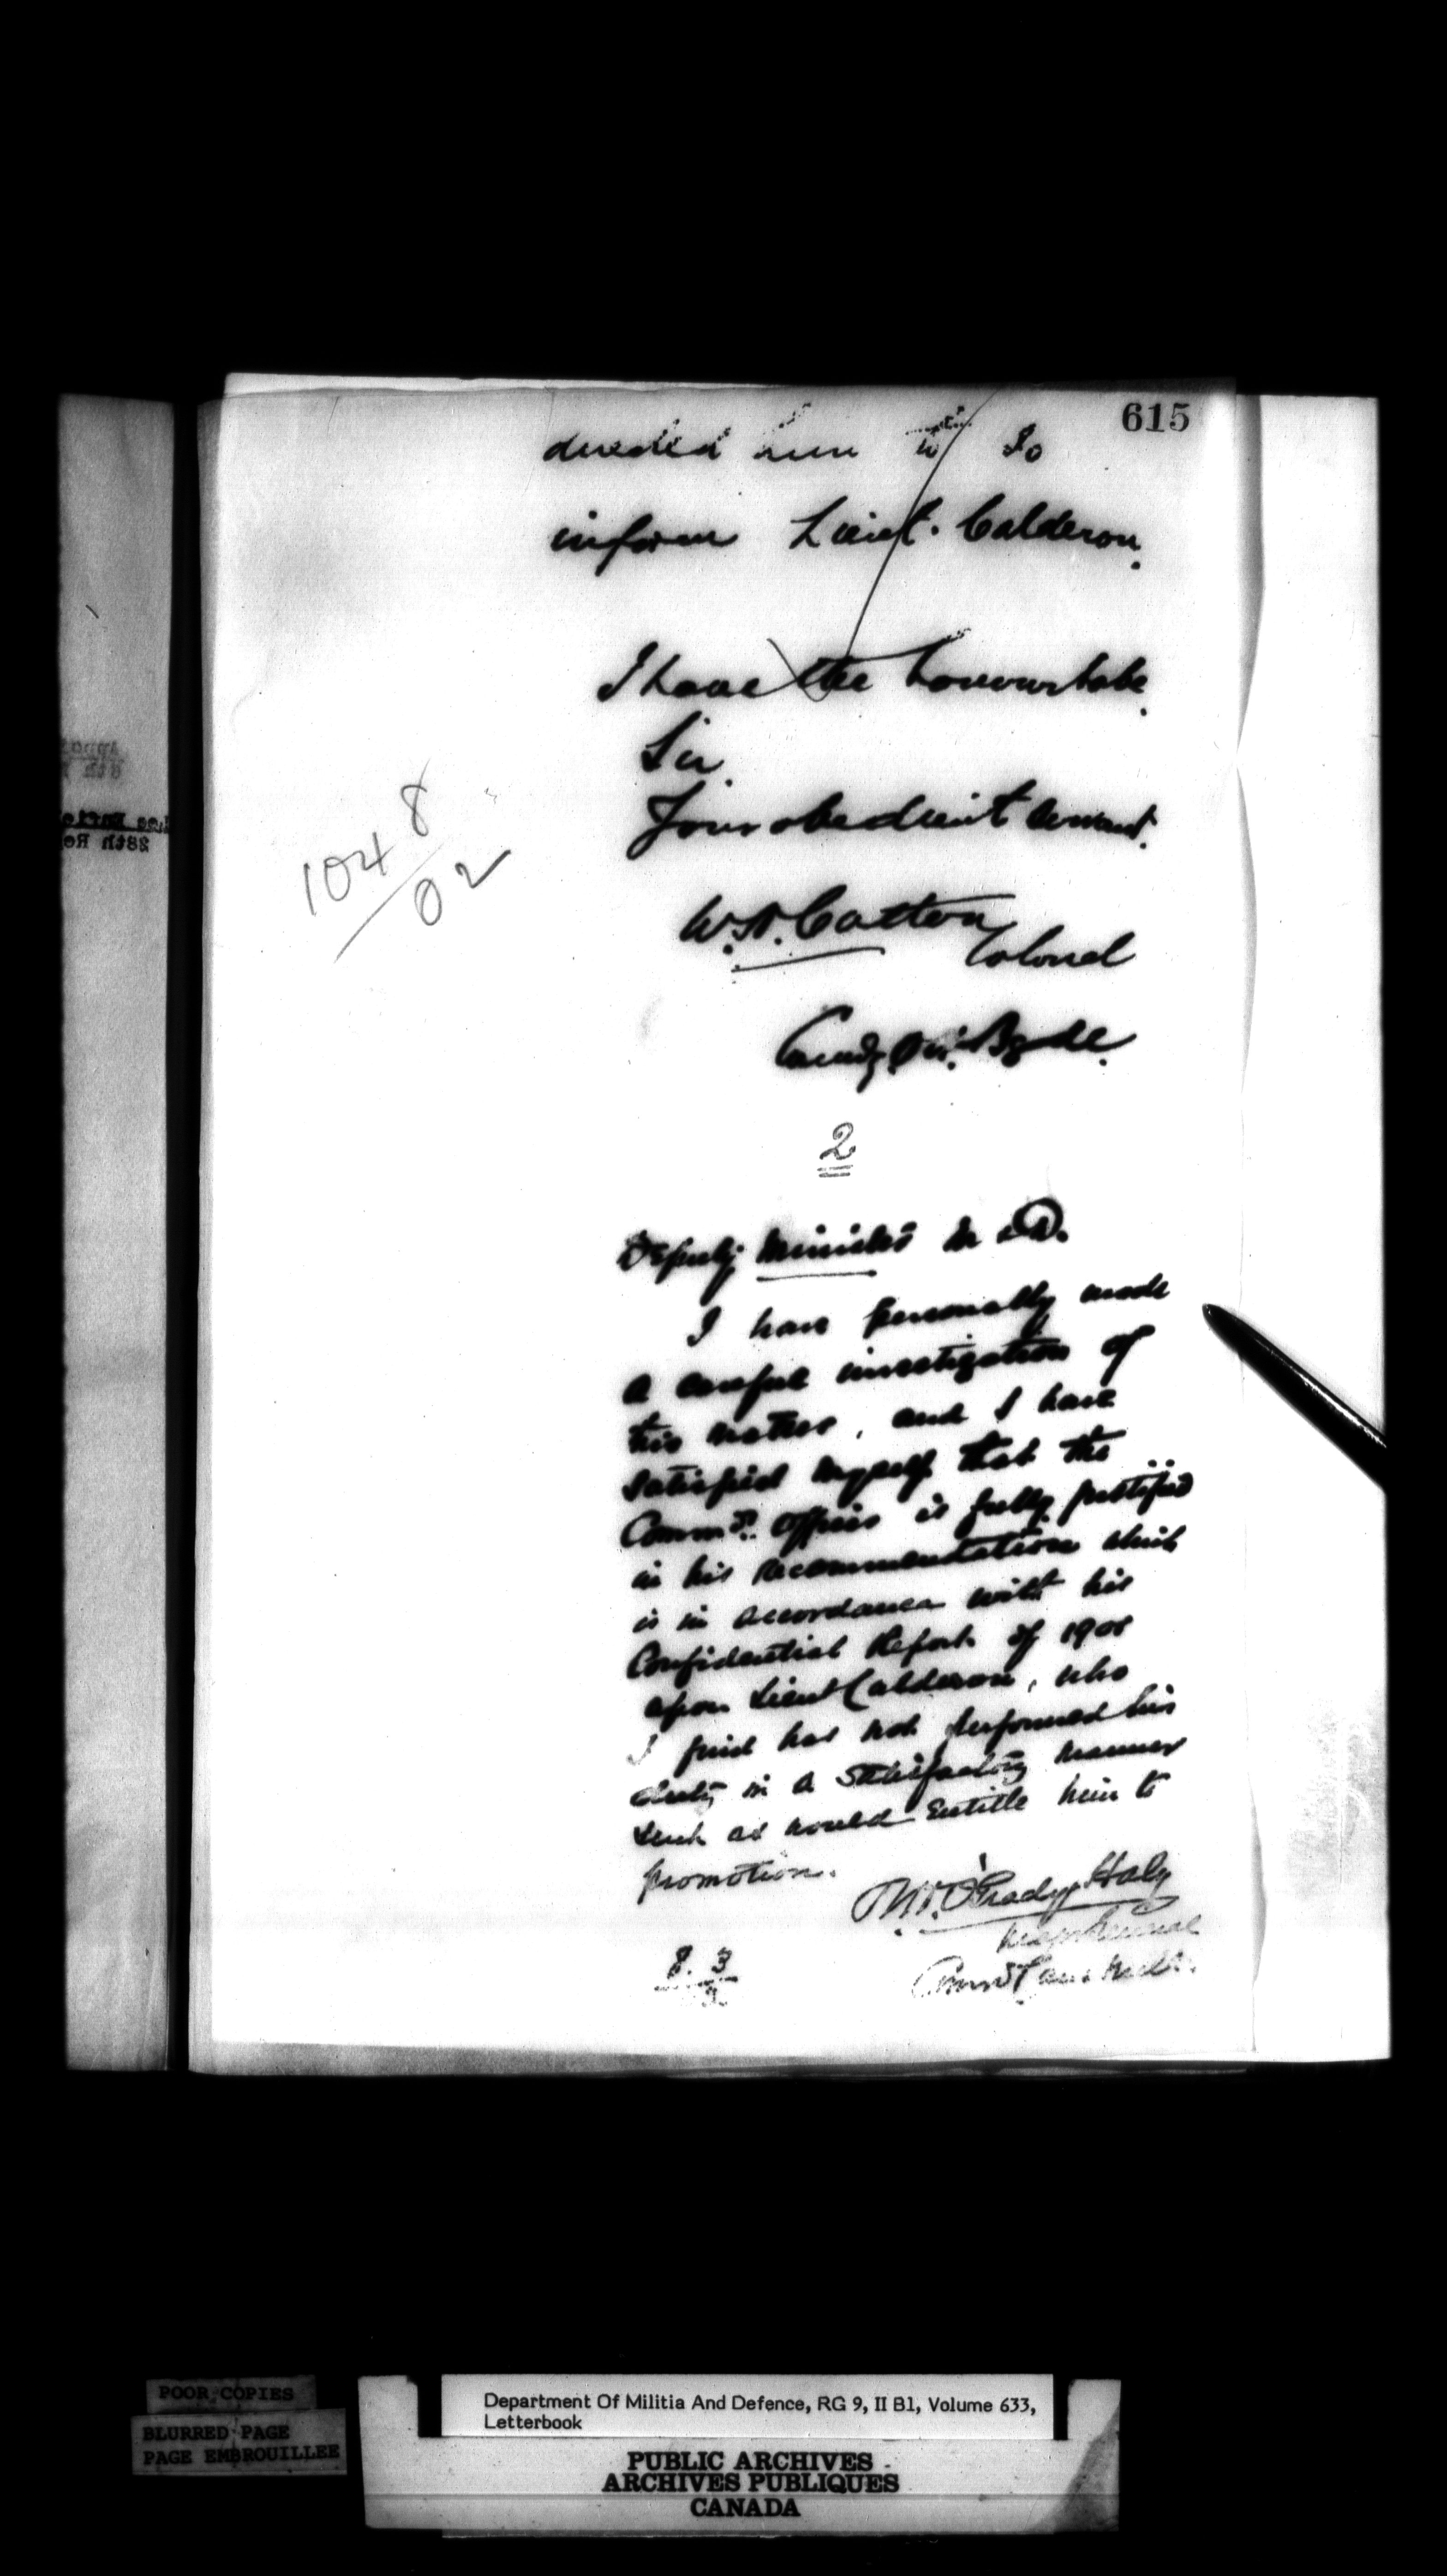 615
directed him to so
inform Lieut. Calderon.
I have the honour to be
Sir.
Your obedient Servant.
W.H. Cotton
Colonel
Comdg.
1048
02
2
Deputy Minister M & D.
I have personally made
a careful investigation of
this matter, and I have
satisfied myself that the
Commdg. Officer is fully justified
in his recommendation which
is in accordance with his
Confidential Report of 1901
upon Lieut Calderon, who
I find has not performed his
duty in a satisfactory manner
such as would entitle him to
promotion.
O'Grady Haly
Major General
Comdg Can: Mil:
8.3
28th Re
POOR COPIES
BLURRED PAGE
PAGE EMBROUILLEE
Department Of Militia And Defence, RG 9, II B1, Volume 633,
Letterbook
PUBLIC ARCHIVES
ARCHIVES PUBLIQUES
CANADA